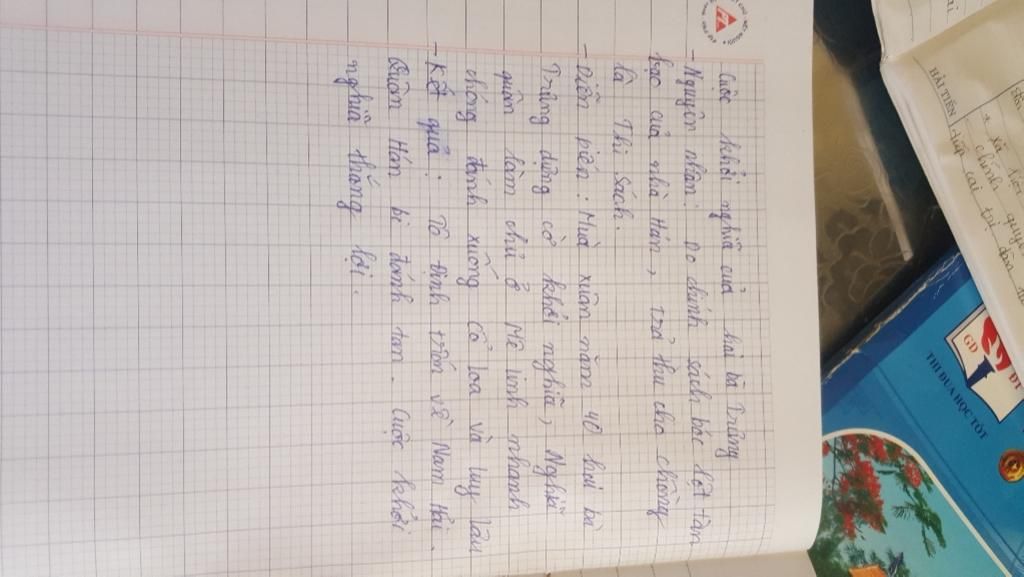 Cuộc khởi nghĩa của hai bà Trưng
- Nguyên nhân: Do chính sách bóc lột tàn
bạo của nhà Hán, trả thù cho chồng
là Thi Sách.
- Diễn biến: Mùa xuân năm 40 hai bà
Trưng dựng cờ khởi nghĩa, Nghĩa
quân làm chủ ở Mê linh nhanh
chóng đánh xuống Cổ loa và Luy lâu
- Kết quả: Tô Định trốn về Nam Hải.
Quân Hán bị đánh tan. Cuộc khởi
nghĩa thắng lợi.
HẢI TIẾN
chính quyền
GD
ĐT
THI ĐUA HỌC TỐT